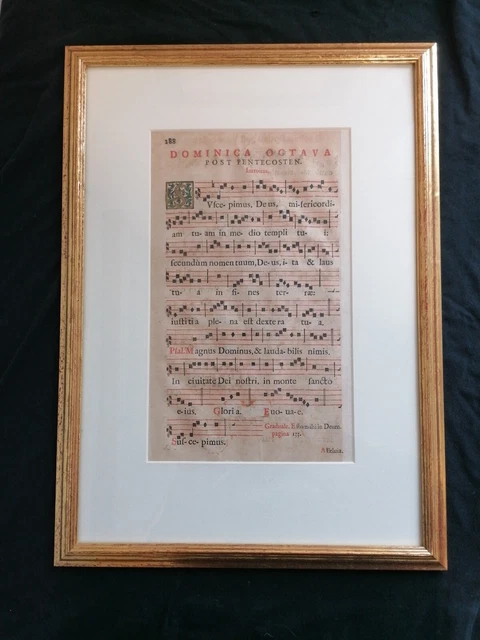 188
DOMINICA OCTAVA
POST PENTECOSTEN.
Introitus.
SVsce- pimus, Deus, mi-sericordi-
am tu- am in me- dio templi tu- i:
secundùm nomen tuum, De-us, i- ta & laus
tu- a in fi- nes ter- ræ:
iustitia ple- na est dextera tu- a.
Psal. Magnus Dominus, & lauda- bilis nimis.
In ciuitate Dei nostri, in monte sancto
e-ius. Gloria. Euo-ua-e.
Graduale. Esto mihi in Deum.
pagina 133.
Sus-ce-pimus.
Alleluia.